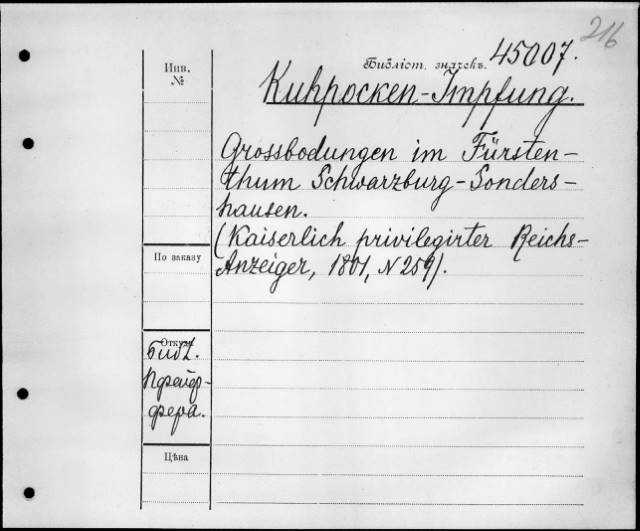 216
Инв.
№
Библіот. значекъ. 45007.
Kuhpocken-Impfung.
Grossbodungen im Fürsten-
thum Schwarzburg-Sonders-
hausen.
(Kaiserlich privilegirter Reichs-
Anzeiger, 1801, N 259).
По заказу
Откуда
Библ.
Пфейф-
фера.
Цѣна